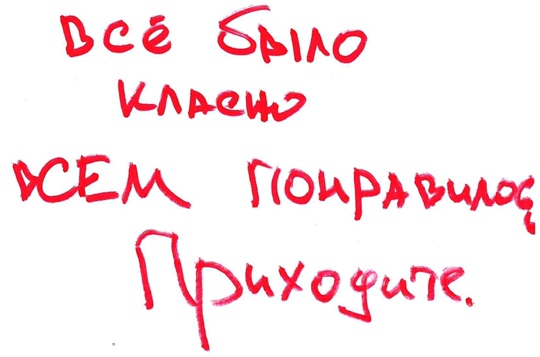 Всё было
класно
всем понравилось
Приходите.